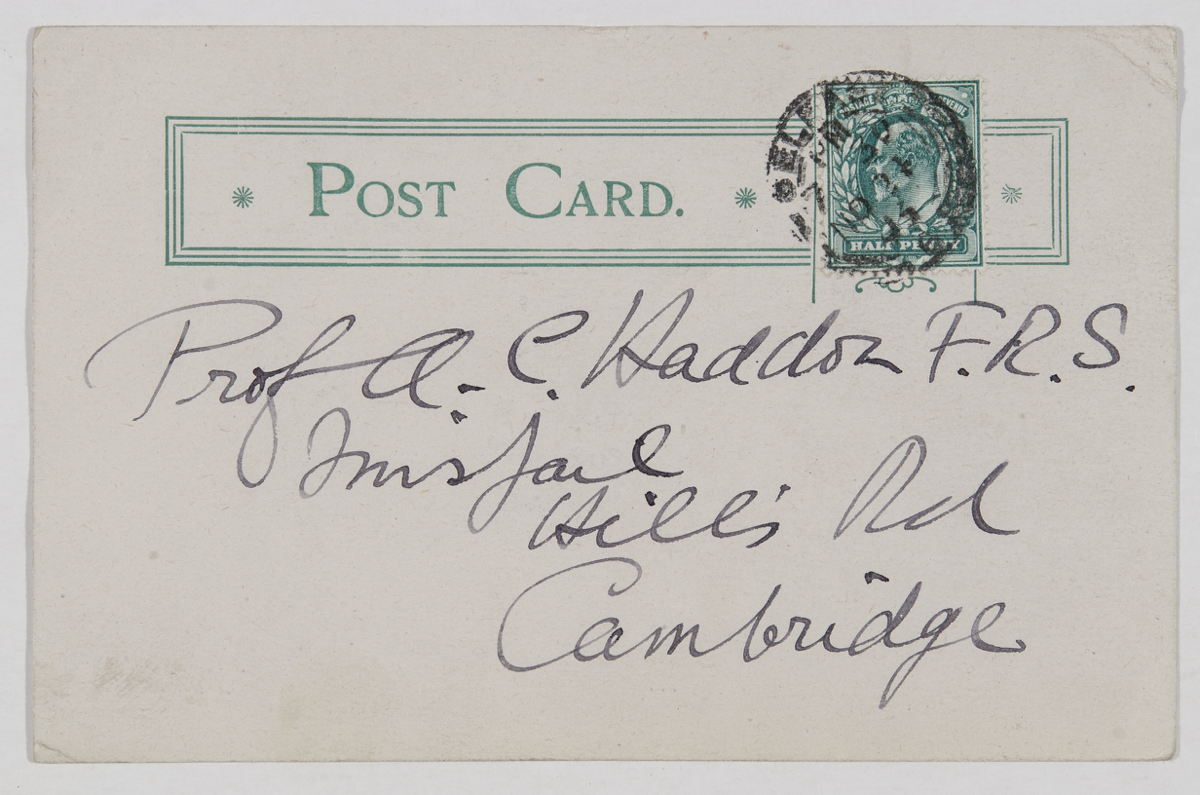 POST CARD.
HALFPENNY
Prof A. C. Haddon F.R.S.
Inisfail
Hills Rd
Cambridge